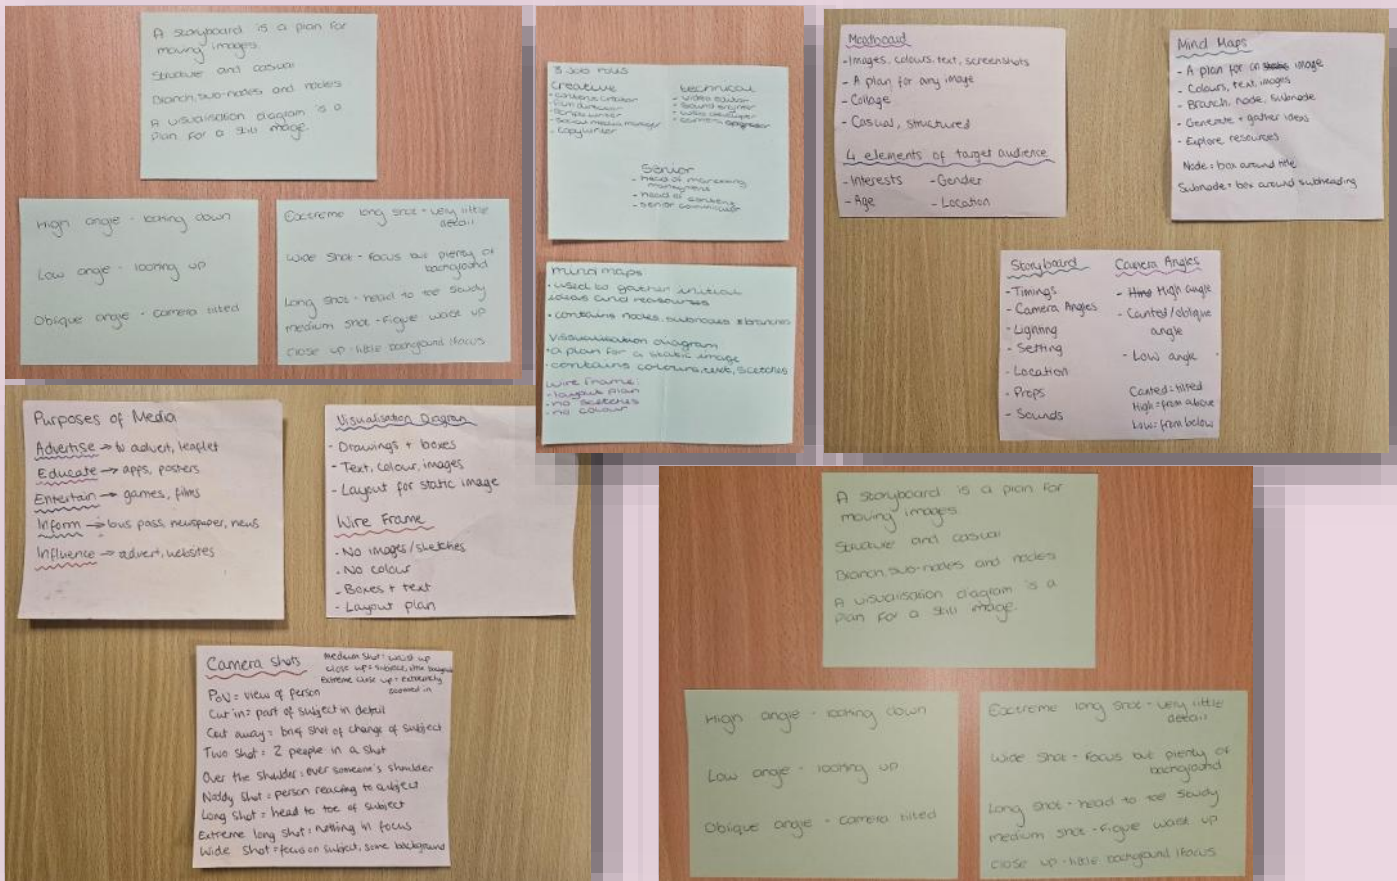 A storyboard is a plan for
moving images.
Structure and casual
Branch, sub-nodes and nodes
A visualisation diagram is a
plan for a still image.
High angle - looking down
Low angle - looking up
Oblique angle - camera tilted
Exctreme long shot - very little
detail
Wide Shot - focus but plenty of
background
Long shot - head to toe
medium shot - Figue waist up
close up - little background focus
3 Job roles
Creative
- content creator
- film director
- script writer
- Social media manager
- copywriter
technical
- video editor
- sound
- web developer
- camera operator
Senior
- head of marketing
- head of content
- senior
mind maps
• used to gather initial
ideas and
• contains nodes, subnodes & branches
Visualisation diagram
• a plan for a static image
• contains colours, text, scetches
wire frame:
- layout plan
- no scetches
- no colour
Moodboard
- Images, colours, text, screenshots
- A plan for any image
- Collage
- Casual, structured
4 elements of target audience
- Interests - Gender
- Age - Location
Mind Maps
- A plan for an image
- Colours, text, images
- Branch, node, subnode
- Generate + gather ideas
- Explore resources
Node = box around title
Subnode = box around subheading
Storyboard
- Timings
- Camera Angles
- Lighting
- Setting
- Location
- Props
- Sounds
Camera Angles
- High angle
- Canted/oblique
angle
- Low angle
Canted = tilted
High = from above
Low = from below
Purposes of Media
Advertise → tv advert, leaflet
Educate → apps, posters
Entertain → games, films
Inform → bus pass, newspaper, news
Influence → advert, websites
Visualisation Diagram
- Drawings + boxes
- Text, colour, images
- Layout for static image
Wire Frame
- No images/sketches
- No colour
- Boxes + text
- Layout plan
Camera shots
Medium shot: waist up
Close up = subject, little
Extreme close up = extremely
zoomed in
PoV = view of person
Cut in = part of subject in detail
Cut away = brief shot of change of subject
Two shot = 2 people in a shot
Over the shoulder = over someone's shoulder
Noddy shot = person reacting to subject
Long shot = head to toe of subject
Extreme long shot = nothing in focus
Wide shot = focus on subject, some background
A storyboard is a plan for
moving images
Structure and casual
Branch, sub-nodes and nodes
A visualisation diagram is a
plan for a still image.
High angle - looking down
Low angle - looking up
Oblique angle - camera tilted
Exctreme long shot - very little
detail
Wide Shot - focus but plenty of
background
Long shot - head to toe
medium shot - Figue waist up
close up - little background focus